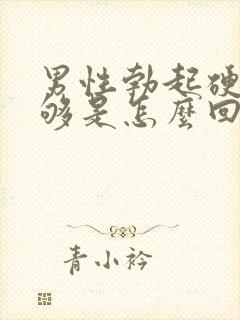 男性勃起硬
够是怎麼回
青小衿